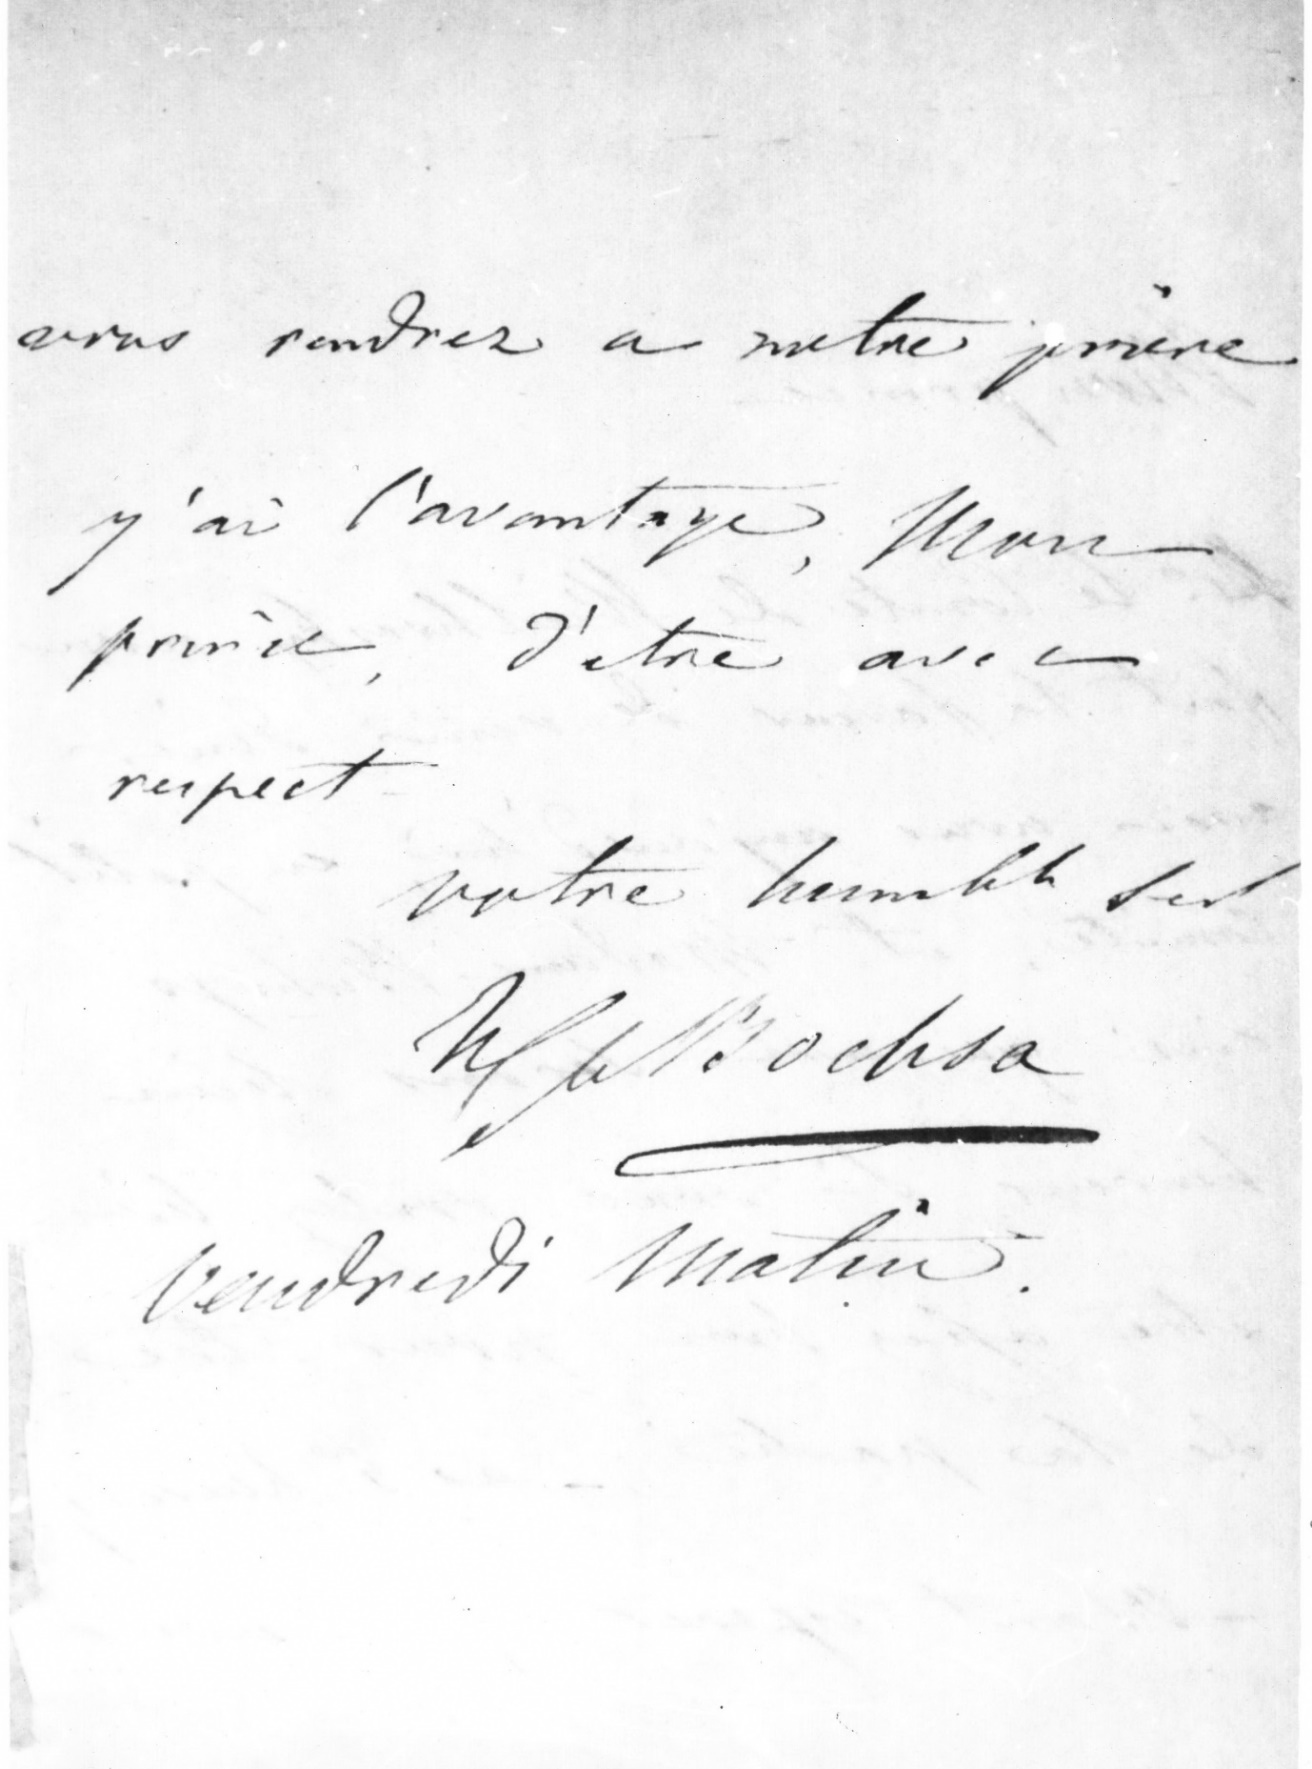 vous rendrez a notre priere
j'ai l'avantage, Mon
prince, d'etre avec
respect
votre humble ser
Bochsa
Vendredi Matin.